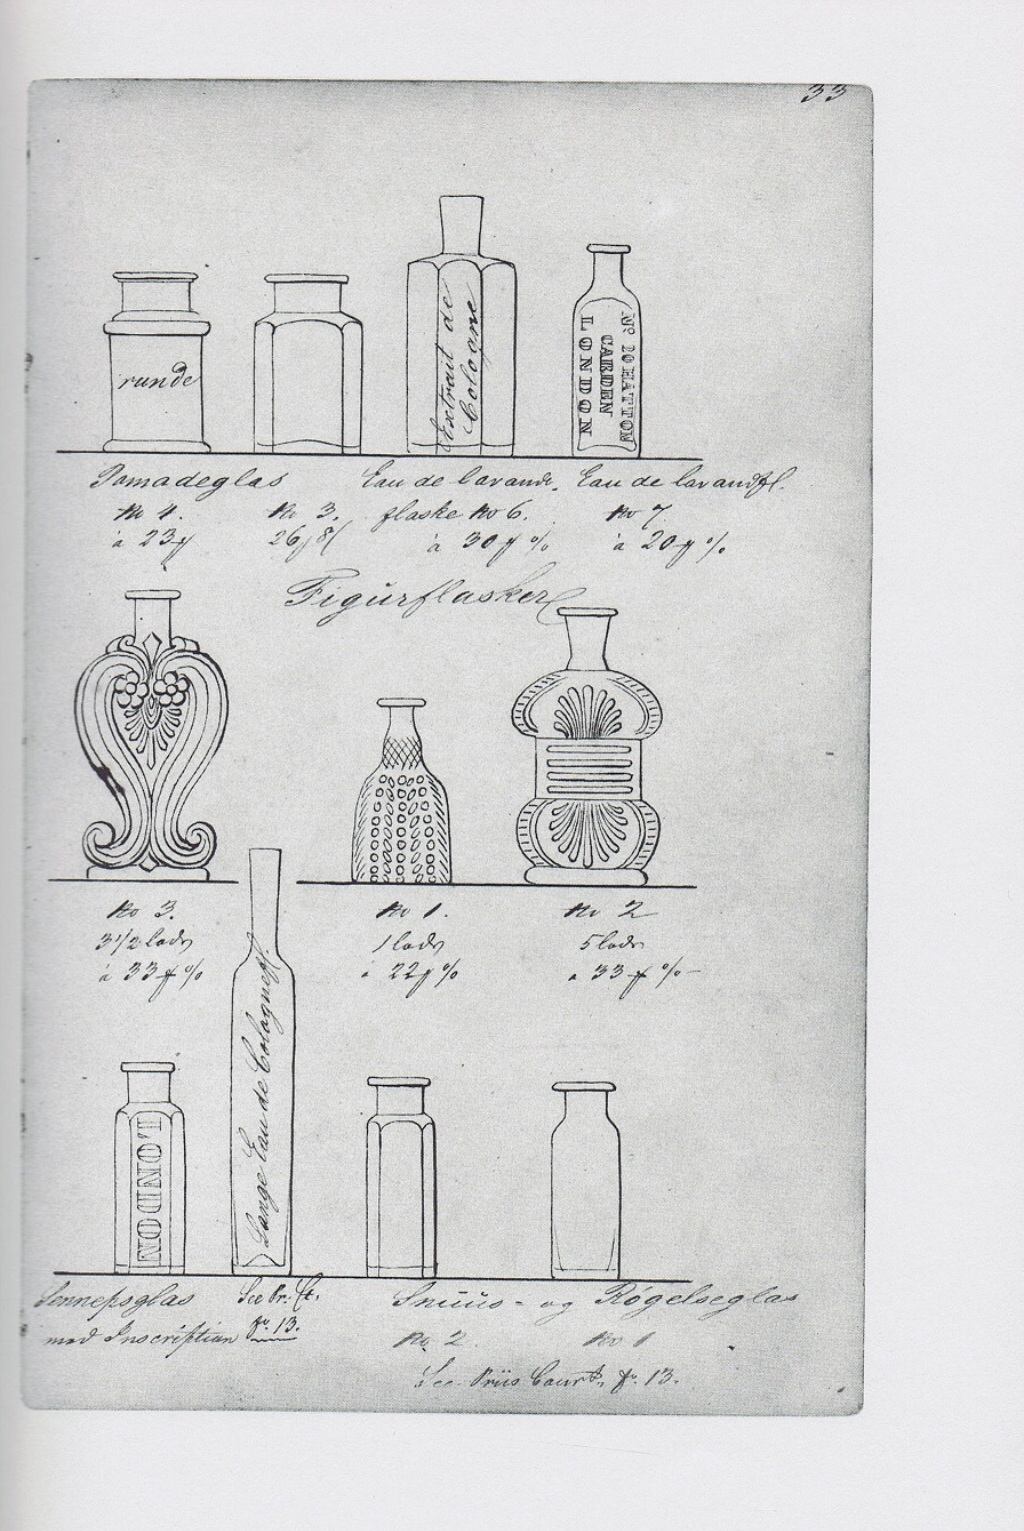 33
runde
Extrait de
Cologne
No 20 HATTON
CARDEN
LONDON
Pomadeglas
Eau de lavande.
Eau de lavandfl.
No 4.
No 3.
flaske No 6.
No 7
à 23
26
à 30 %
à 20 %
Figúrflasker
No 3.
No 1.
No 2
3 1/2 lods
1 lods
5 lods
à 33 %
à 22 %
à 33 %
LONDON
Lange Eau de Colognefl.
Sennepsglas
med Inscription
See Pr: Ct.
fo. 13.
Snüüs- og Rögelseglas
No 2
No 1
See Priis Courts, fo. 13.